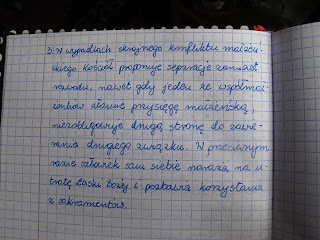 3. W wypadkach skrajnego konfliktu małżeń-
skiego Kościół proponuje separację zamiast
rozwodu, nawet gdy jeden ze współmał-
żonków złamie przysięgę małżeńską
niezobligowuje drugą stronę do zawie-
rania drugiego związku. W przeciwnym
razie człowiek sam siebie naraża na u-
tratę Łaski Bożej i pozbawia korzystania
z sakramentów.